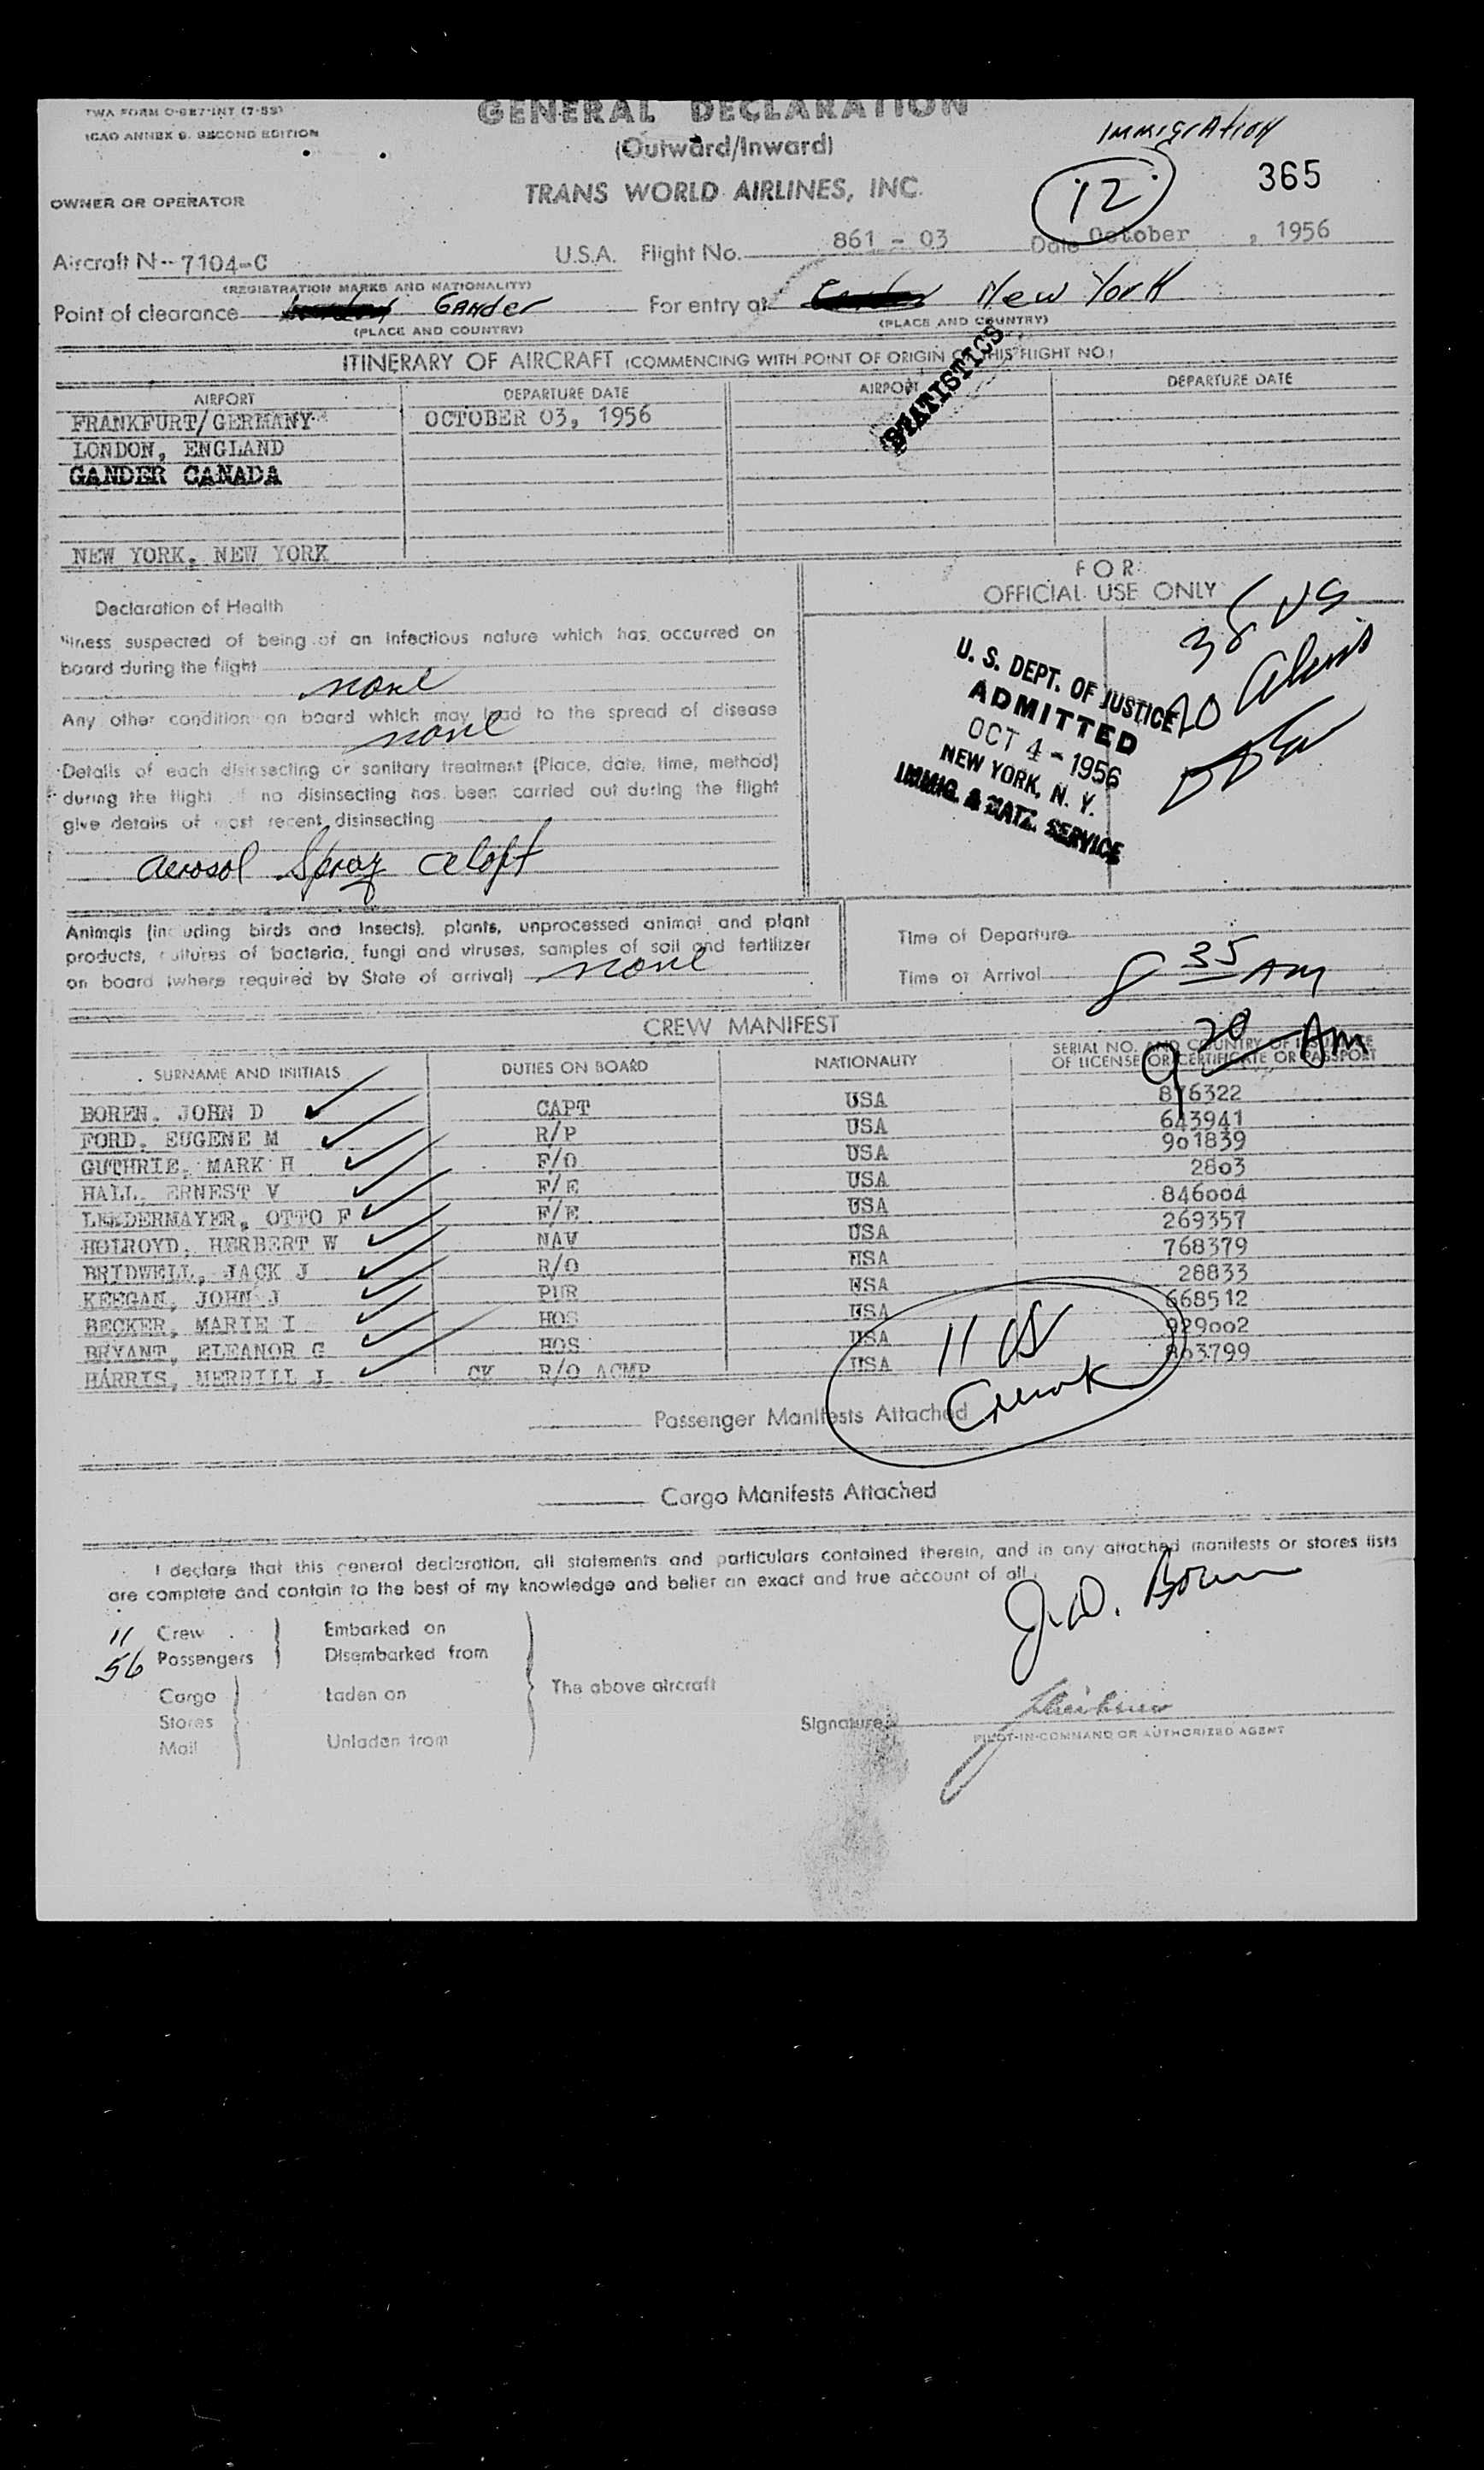 TWA FORM O-687-INT (7-55)
ICAO ANNEX 9, SECOND EDITION
GENERAL DECLARATION
(Outward/Inward)
IMMIGRATION
TRANS WORLD AIRLINES, INC.
12
365
OWNER OR OPERATOR
Aircraft N-7104-C U.S.A. Flight No. 861 - 03 Date October , 1956
(REGISTRATION MARKS AND NATIONALITY)
Point of clearance Gander For entry at New York
(PLACE AND COUNTRY) (PLACE AND COUNTRY)
STATISTICS
ITINERARY OF AIRCRAFT (COMMENCING WITH POINT OF ORIGIN OF THIS FLIGHT NO.)
AIRPORT DEPARTURE DATE AIRPORT DEPARTURE DATE
FRANKFURT/GERMANY OCTOBER 03, 1956
LONDON, ENGLAND
GANDER CANADA
NEW YORK, NEW YORK
Declaration of Health
Illness suspected of being of an infectious nature which has occurred on
board during the flight
none
Any other condition on board which may lead to the spread of disease
none
Details of each disinsecting or sanitary treatment (Place, date, time, method)
during the flight if no disinsecting has been carried out during the flight
give details of most recent disinsecting
aerosol Spray aloft
FOR
OFFICIAL USE ONLY
U. S. DEPT. OF JUSTICE
ADMITTED
OCT 4 - 1956
NEW YORK, N. Y.
IMMIG. & NATZ. SERVICE
US
20 aliens
Animals (including birds and Insects), plants, unprocessed animal and plant
products, cultures of bacteria, fungi and viruses, samples of soil and fertilizer
on board (where required by State of arrival) none
Time of Departure
Time of Arrival 8 35 AM
9 20 AM
CREW MANIFEST
SURNAME AND INITIALS DUTIES ON BOARD NATIONALITY SERIAL NO. AND COUNTRY OF ISSUANCE
OF LICENSE OR CERTIFICATE OR PASSPORT
BOREN, JOHN D CAPT USA 876322
FORD, EUGENE M R/P USA 643941
GUTHRIE, MARK H F/O USA 901839
HALL, ERNEST V F/E USA 2803
LEEDERMAYER, OTTO F F/E USA 846004
HOLROYD, HERBERT W NAV USA 269357
BRIDWELL, JACK J R/O USA 768379
KEEGAN, JOHN J PUR USA 28833
BECKER, MARIE I HOS USA 668512
BRYANT, ELEANOR G HOS USA 929002
HARRIS, MERRILL J CK R/O ACMP USA 863799
11 US
Passenger Manifests Attached
Cargo Manifests Attached
I declare that this general declaration, all statements and particulars contained therein, and in any attached manifests or stores lists
are complete and contain to the best of my knowledge and belief an exact and true account of all
J.D. Boren
11 Crew Embarked on
56 Passengers Disembarked from
Cargo Laden on The above aircraft
Stores
Mail Unladen from
Signature
PILOT-IN-COMMAND OR AUTHORIZED AGENT